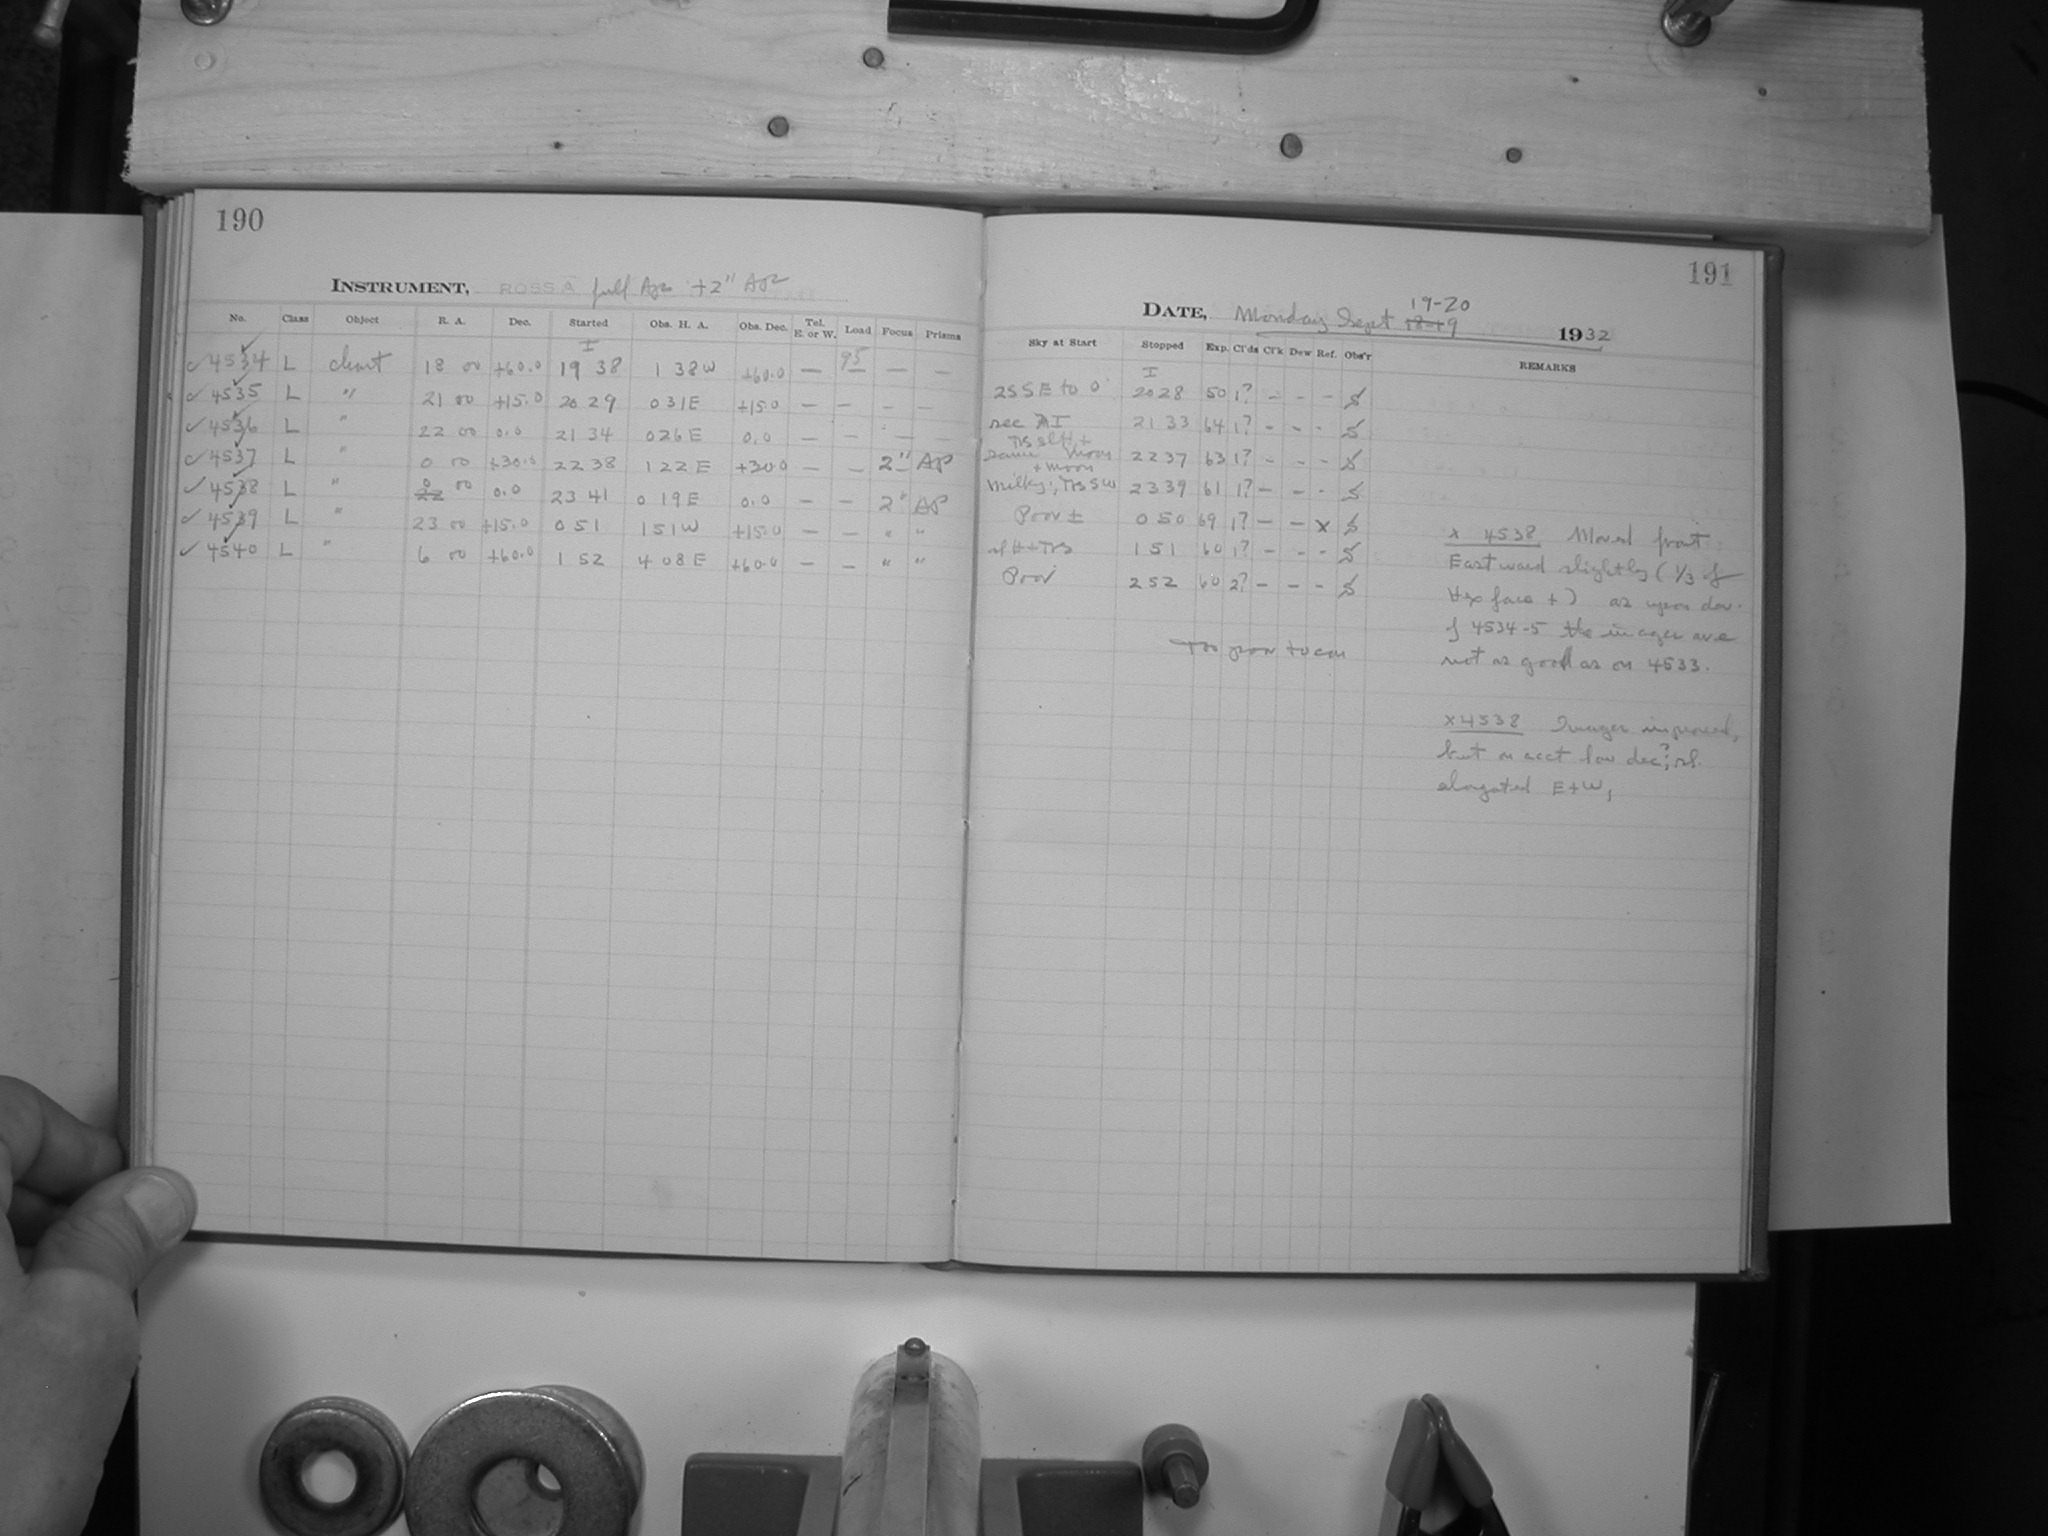 190
INSTRUMENT, ROSS A full Ap +2" Ap
No. Class Object R. A. Dec. Started Obs. H. A. Obs. Dec. Tel. E. or W. Load Focus Prisms
I 95
✓ 4534 L chart 18 00 +60.0 19 38 1 38 W +60.0 — — — —
✓ 4535 L " 21 00 +15.0 20 29 0 31 E +15.0 — — — —
✓ 4536 L " 22 00 0.0 21 34 0 26 E 0.0 — — — —
✓ 4537 L " 0 00 +30.0 22 38 1 22 E +30.0 — — 2" AP
✓ 4538 L " 22 0 00 0.0 23 41 0 19 E 0.0 — — 2" AP
✓ 4539 L " 23 00 +15.0 0 51 1 51 W +15.0 — — " "
✓ 4540 L " 6 00 +60.0 1 52 4 08 E +60.0 — — " "
191
DATE, Monday Sept 18-19 19-20 1932
Sky at Start Stopped Exp. Cl'ds Cl'k Dew Ref. Obs'r REMARKS
I
2S SE to 0 20 28 50 1? - - - S
21 33 64 1? - - - S
same moon 22 37 63 1? - - - S
+ moon
Milky, SW 23 39 61 1? — - - S
Poor ± 0 50 69 1? — — x S
1 51 60 1? - - - S
Poor 2 52 60 2? - - - S
Too poor to con
x 4538 Moved front
Eastward slightly (1/3 of
face +) as upon dev.
of 4534-5 the images are
not as good as on 4533.
x 4538 Images improved,
but on acct low dec?, sl.
elongated E+W,